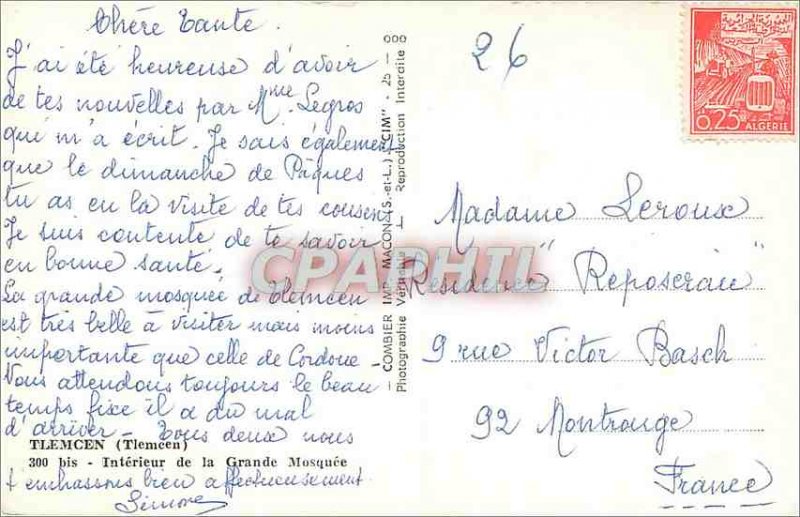 Chère Tante.
J'ai été heureuse d'avoir
de tes nouvelles par Mme Legros
qui m'a écrit. Je sais également
que le dimanche de Pâques
tu as eu la visite de tes cousins
Je suis contente de te savoir
en bonne santé.
La grande mosquée de Tlemcen
est très belle à visiter mais moins
importante que celle de Cordoue -
Nous attendons toujours le beau
temps fixe il a du mal
d'arriver - Tous deux nous
TLEMCEN (Tlemcen)
300 bis - Intérieur de la Grande Mosquée
t'embrassons bien affectueusement
Simone
— COMBIER IMP. MACON (S.-et-L.) "CIM" - 25 — 000
Photographie Véritable — Reproduction Interdite
CPAPHIL
26
0.25 ALGERIE
Madame Leroux
Résidence "Reposerau"
9 rue Victor Basch
92 Montrouge
France